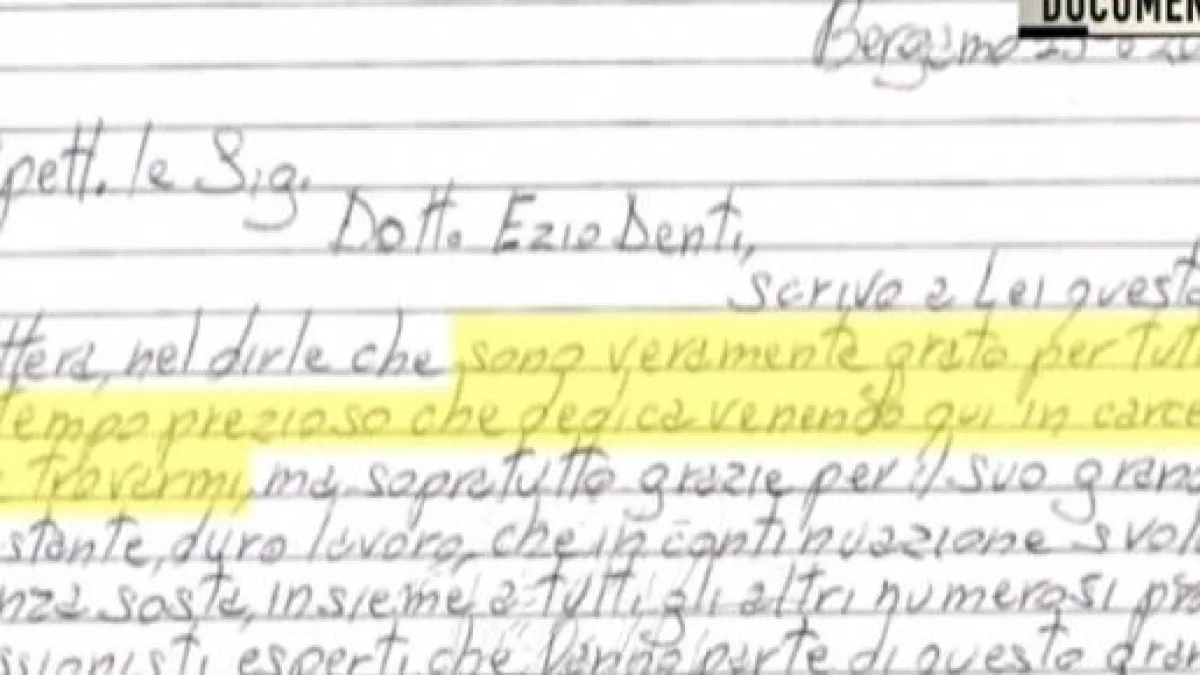 DOCUMEN
Bergamo
pett. le Sig.
Dott. Ezio Denti,
scrivo a Lei questa
ttera, nel dirle che sono veramente grato per tut
tempo prezioso che dedica venendo qui in carce
trovarmi, ma sopratutto grazie per il suo gran
stante, duro lavoro, che in continuazione svol
nza sosta, insieme a tutti gli altri numerosi pro
ssionisti esperti che fanno parte di questo gran